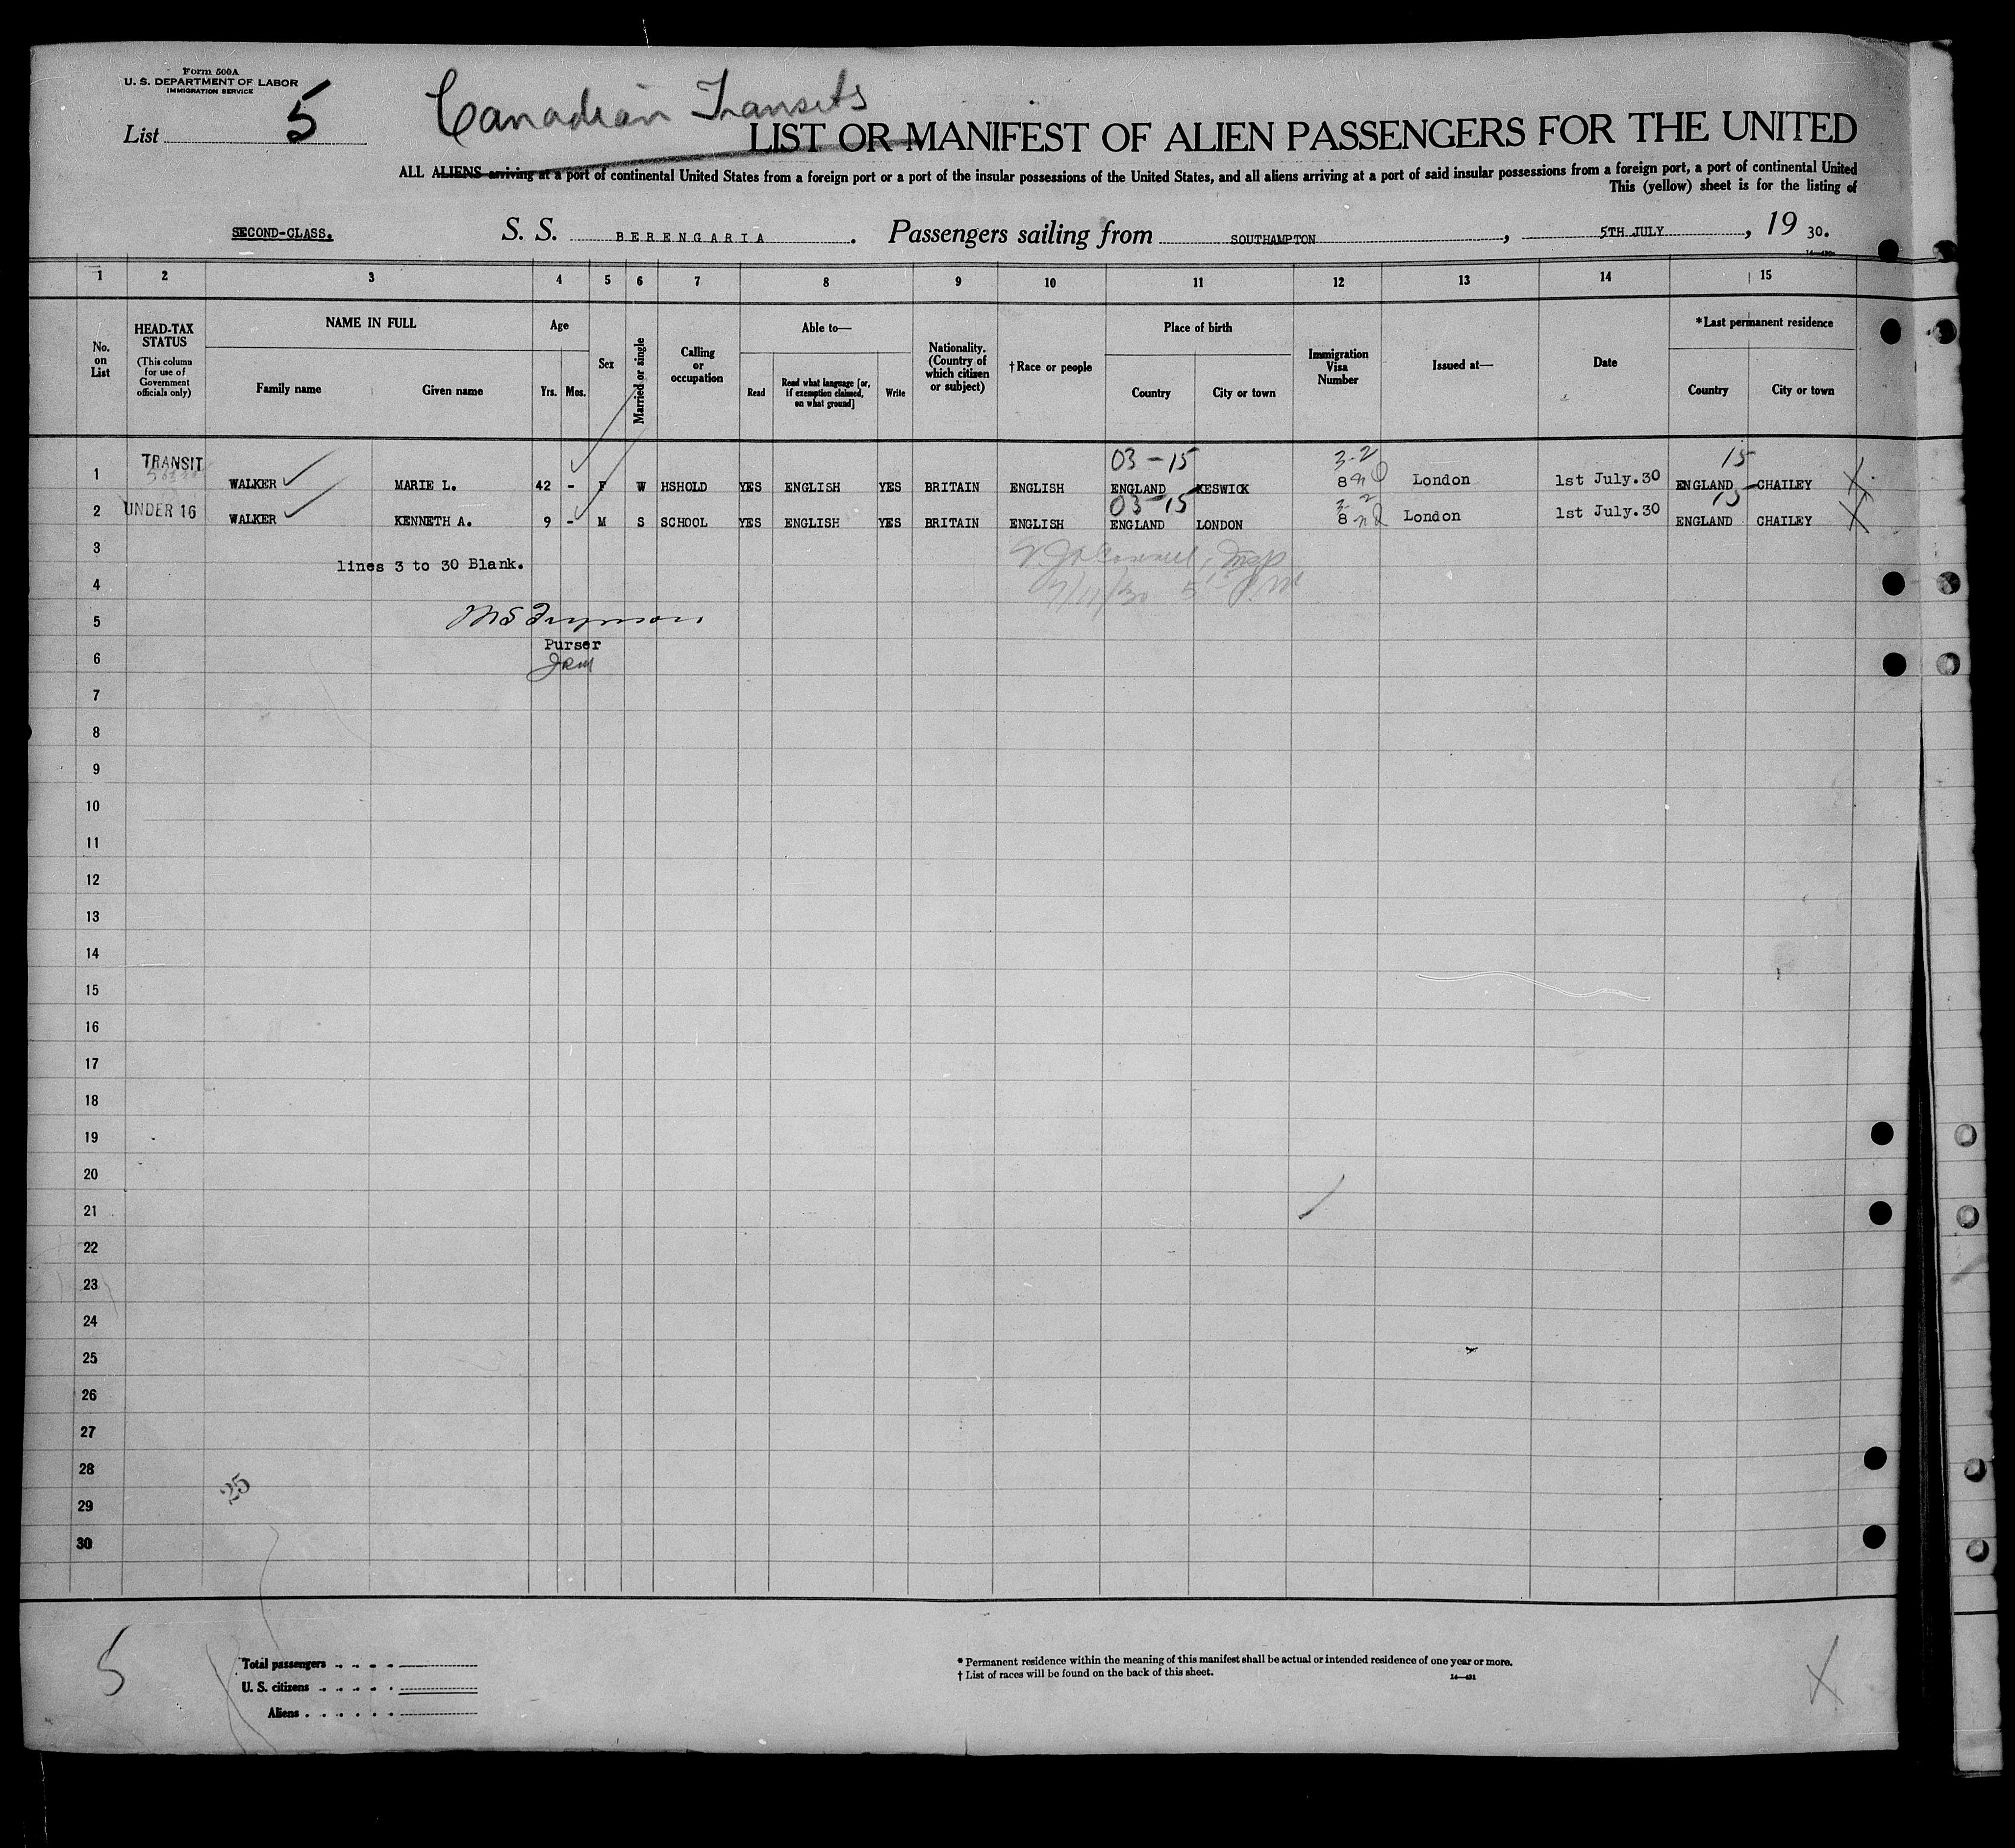 Form 500A
U. S. DEPARTMENT OF LABOR
IMMIGRATION SERVICE
List 5
Canadian Transits
LIST OR MANIFEST OF ALIEN PASSENGERS FOR THE UNITED
ALL ALIENS arriving at a port of continental United States from a foreign port or a port of the insular possessions of the United States, and all aliens arriving at a port of said insular possessions from a foreign port, a port of continental United
This (yellow) sheet is for the listing of
SECOND-CLASS. S. S. BERENGARIA. Passengers sailing from SOUTHAMPTON, 5TH JULY, 19 30.
1 2 3 4 5 6 7 8 9 10 11 12 13 14 15
No. on List
HEAD-TAX STATUS
(This column for use of Government officials only)
NAME IN FULL
Family name Given name
Age
Yrs. Mos.
Sex
Married or single
Calling or occupation
Able to—
Read
Read what language [or, if exemption claimed, on what ground]
Write
Nationality. (Country of which citizen or subject)
†Race or people
Place of birth
Country City or town
Immigration Visa Number
Issued at—
Date
*Last permanent residence
Country City or town
03-15 3-2 15
1 TRANSIT WALKER MARIE L. 42 - F W HSHOLD YES ENGLISH YES BRITAIN ENGLISH ENGLAND KESWICK 8 London 1st July.30 ENGLAND CHAILEY
03-15 15
2 UNDER 16 WALKER KENNETH A. 9 - M S SCHOOL YES ENGLISH YES BRITAIN ENGLISH ENGLAND LONDON 8 London 1st July.30 ENGLAND CHAILEY
3
lines 3 to 30 Blank.
4
5
Purser
6
7
8
9
10
11
12
13
14
15
16
17
18
19
20
21
22
23
24
25
26
27
28
25
29
30
5
Total passengers
U. S. citizens
Aliens
* Permanent residence within the meaning of this manifest shall be actual or intended residence of one year or more.
† List of races will be found on the back of this sheet.
14—431
X